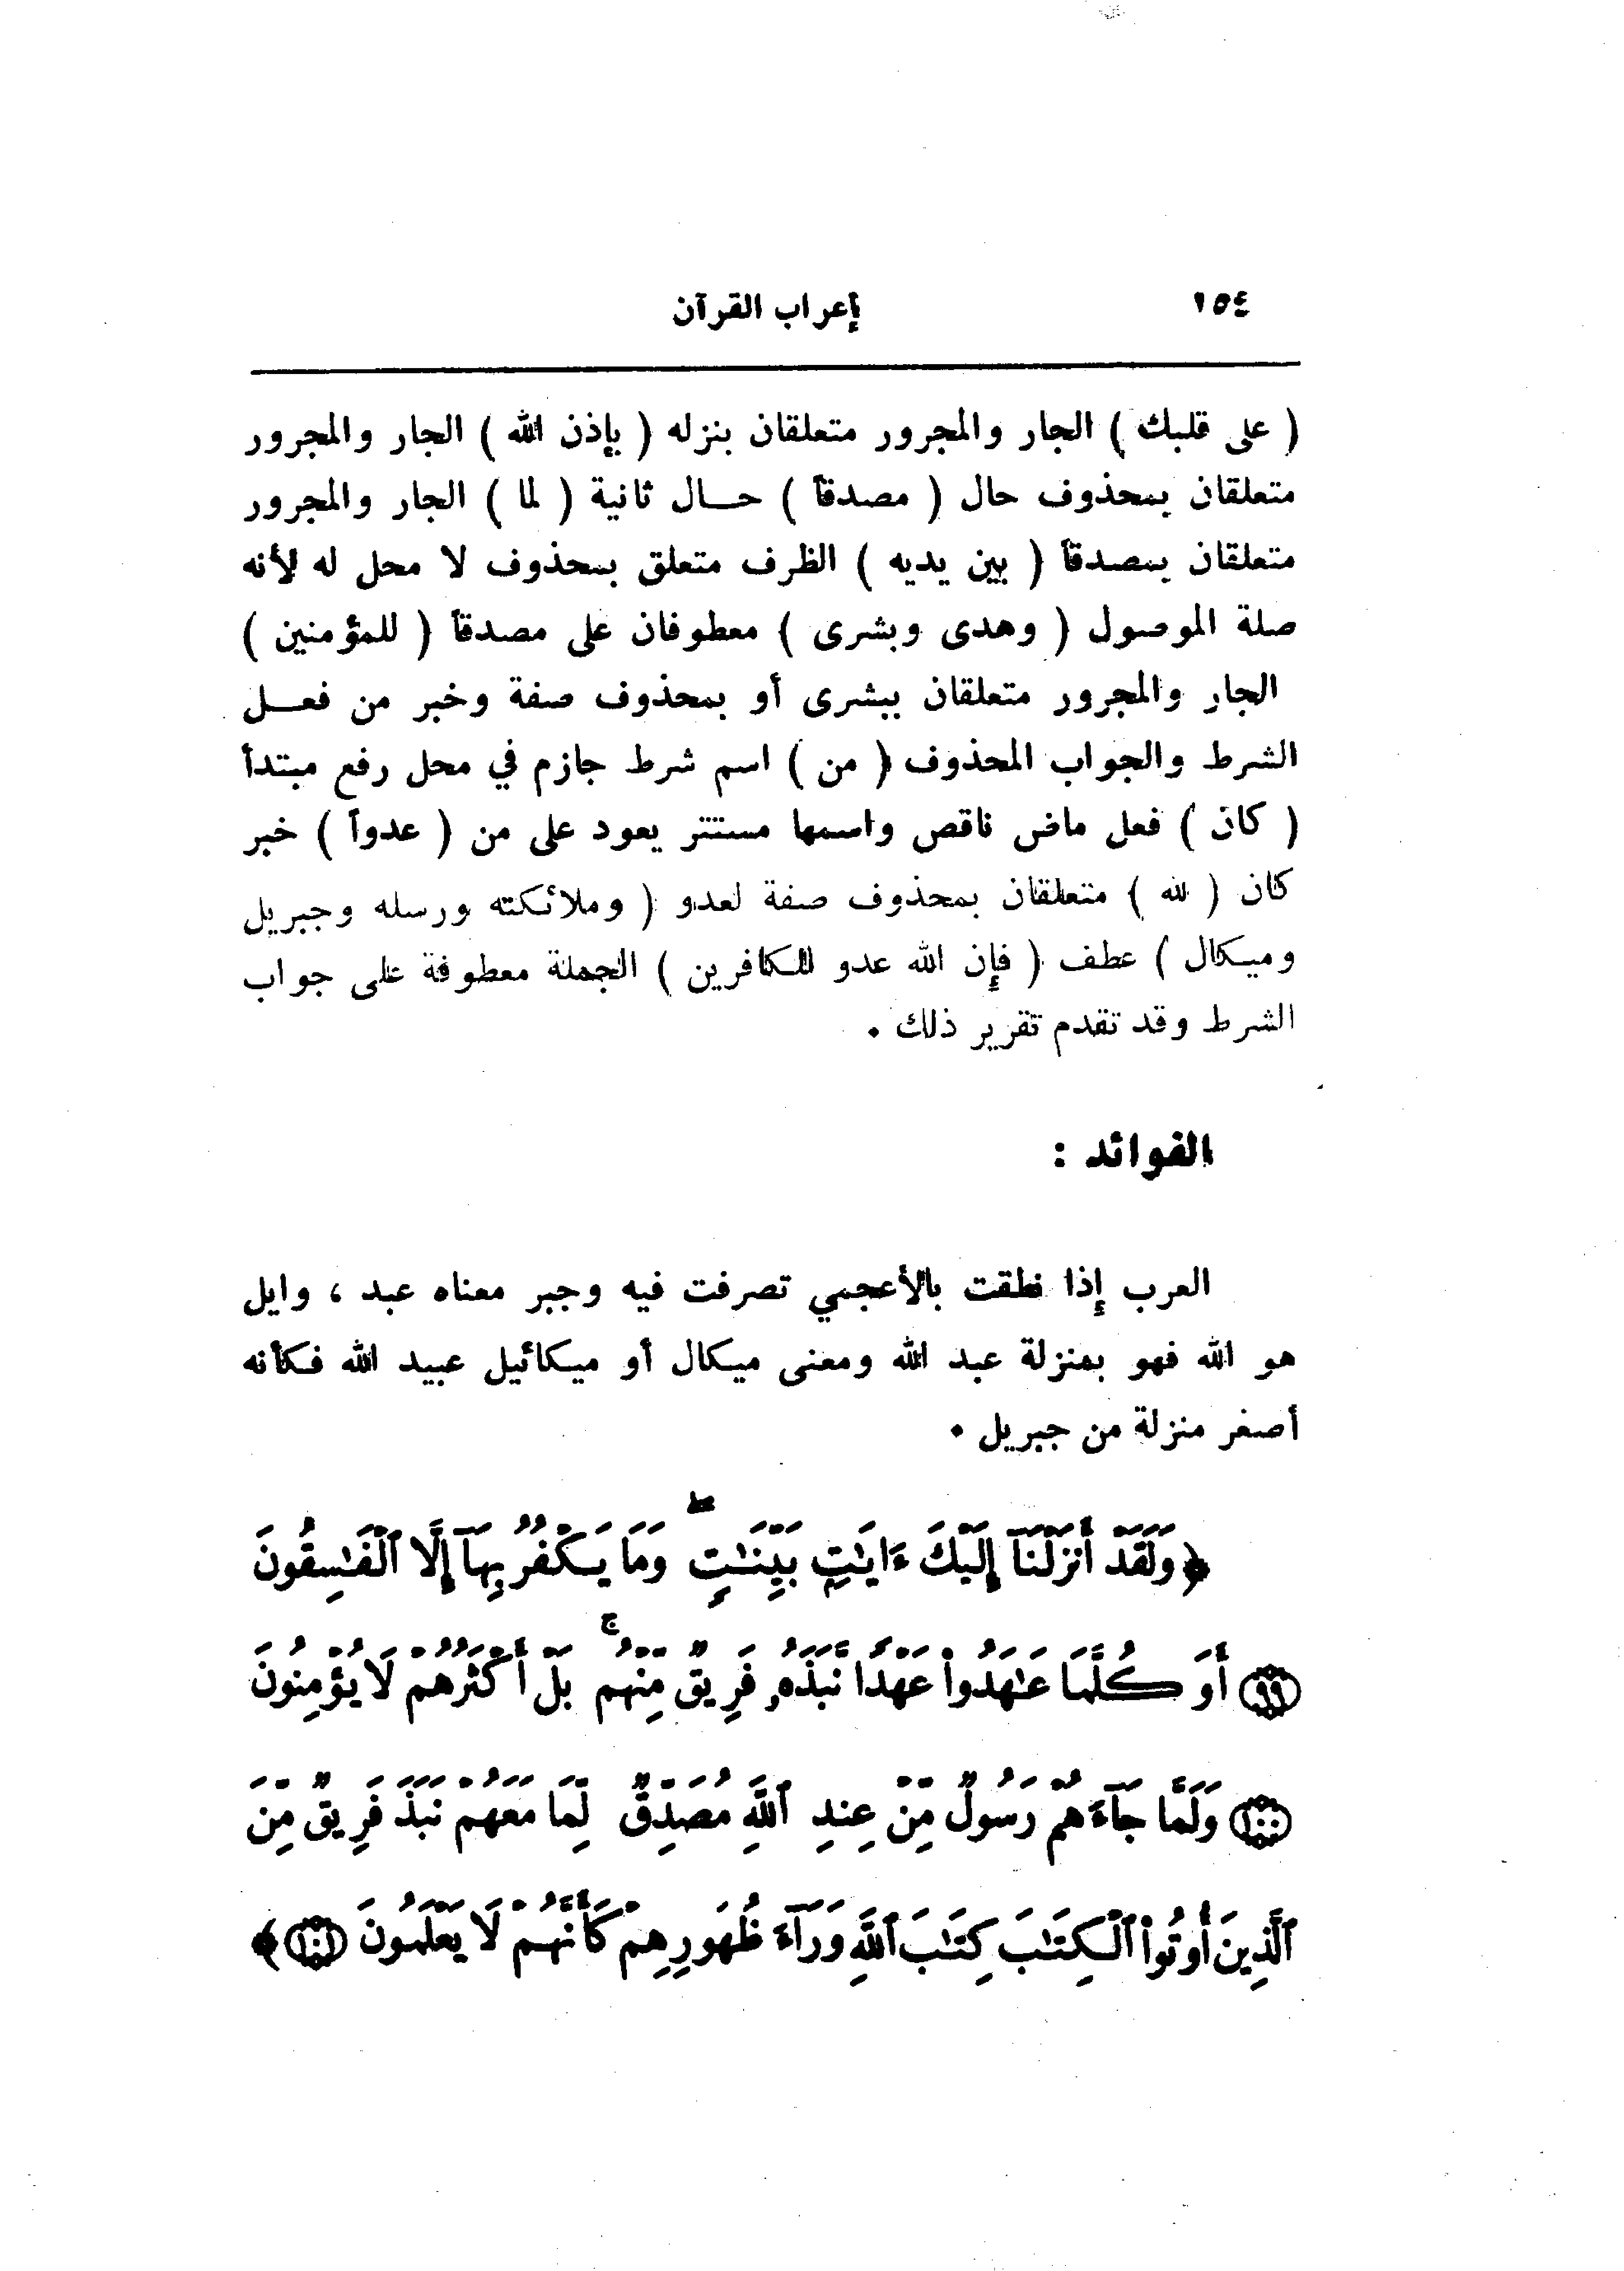 ١٥٤ إعراب القرآن
( على قلبك ) الجار والمجرور متعلقان بنزله ( بإذن الله ) الجار والمجرور
متعلقان بمحذوف حال ( مصدقاً ) حـــال ثانية ( لما ) الجار والمجرور
متعلقان بمصدقاً ( بين يديه ) الظرف متعلق بمحذوف لا محل له لأنه
صلة الموصول ( وهدى وبشرى ) معطوفان على مصدقاً ( للمؤمنين )
الجار والمجرور متعلقان ببشرى أو بمحذوف صفة وخبر من فعـــل
الشرط والجواب المحذوف ( من ) اسم شرط جازم في محل رفع مبتدأ
( كان ) فعل ماض ناقص واسمها مستتر يعود على من ( عدواً ) خبر
كان ( لله ) متعلقان بمحذوف صفة لعدو ( وملائكته ورسله وجبريل
وميكال ) عطف ( فإن الله عدو للكافرين ) الجملة معطوفة على جواب
الشرط وقد تقدم تقرير ذلك .
الفوائد :
العرب إذا نطقت بالأعجمي تصرفت فيه وجبر معناه عبد ، وايل
هو الله فهو بمنزلة عبد الله ومعنى ميكال أو ميكائيل عبيد الله فكأنه
أصغر منزلة من جبريل .
﴿ وَلَقَدْ أَنزَلْنَآ إِلَيْكَ ءَايَٰتٍۭ بَيِّنَٰتٍۖ وَمَا يَكْفُرُ بِهَآ إِلَّا ٱلْفَٰسِقُونَ
(٩٩) أَوَ كُلَّمَا عَٰهَدُوا۟ عَهْدًا نَّبَذَهُۥ فَرِيقٌ مِّنْهُمۚ بَلْ أَكْثَرُهُمْ لَا يُؤْمِنُونَ
(١٠٠) وَلَمَّا جَآءَهُمْ رَسُولٌ مِّنْ عِندِ ٱللَّهِ مُصَدِّقٌ لِّمَا مَعَهُمْ نَبَذَ فَرِيقٌ مِّنَ
ٱلَّذِينَ أُوتُوا۟ ٱلْكِتَٰبَ كِتَٰبَ ٱللَّهِ وَرَآءَ ظُهُورِهِمْ كَأَنَّهُمْ لَا يَعْلَمُونَ (١٠١) ﴾